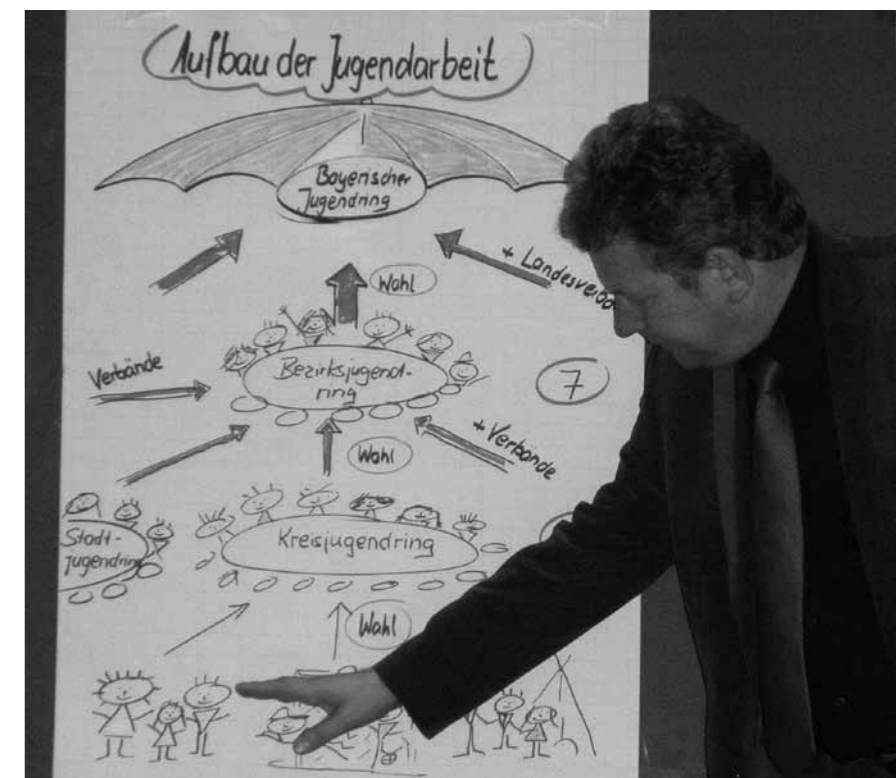 Aufbau der Jugendarbeit
Bayerischer
Jugendring
Wahl
+ Landesverbä
Verbände
Bezirksjugend-
ring
7
Wahl
+ Verbände
Stadt-
jugendring
Kreisjugendring
Wahl